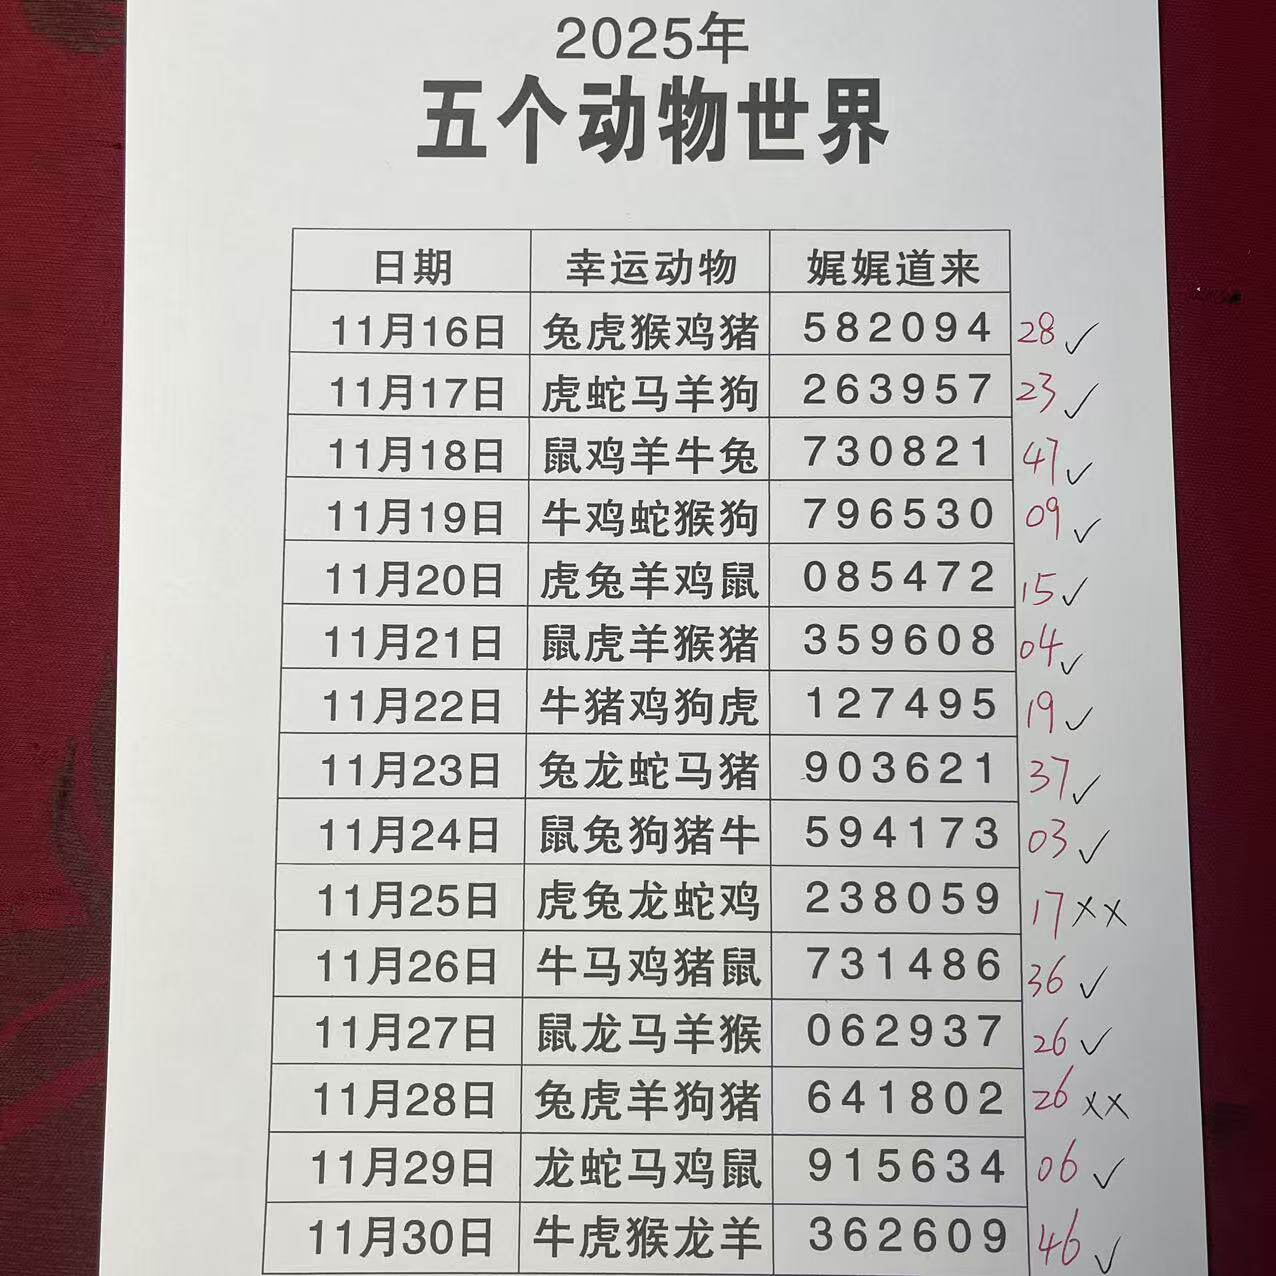 2025年
五个动物世界
日期 幸运动物 娓娓道来
11月16日 兔虎猴鸡猪 582094 28 ✓
11月17日 虎蛇马羊狗 263957 23 ✓
11月18日 鼠鸡羊牛兔 730821 47 ✓
11月19日 牛鸡蛇猴狗 796530 09 ✓
11月20日 虎兔羊鸡鼠 085472 15 ✓
11月21日 鼠虎羊猴猪 359608 04 ✓
11月22日 牛猪鸡狗虎 127495 19 ✓
11月23日 兔龙蛇马猪 903621 37 ✓
11月24日 鼠兔狗猪牛 594173 03 ✓
11月25日 虎兔龙蛇鸡 238059 17 ××
11月26日 牛马鸡猪鼠 731486 36 ✓
11月27日 鼠龙马羊猴 062937 26 ✓
11月28日 兔虎羊狗猪 641802 26 ××
11月29日 龙蛇马鸡鼠 915634 06 ✓
11月30日 牛虎猴龙羊 362609 46 ✓